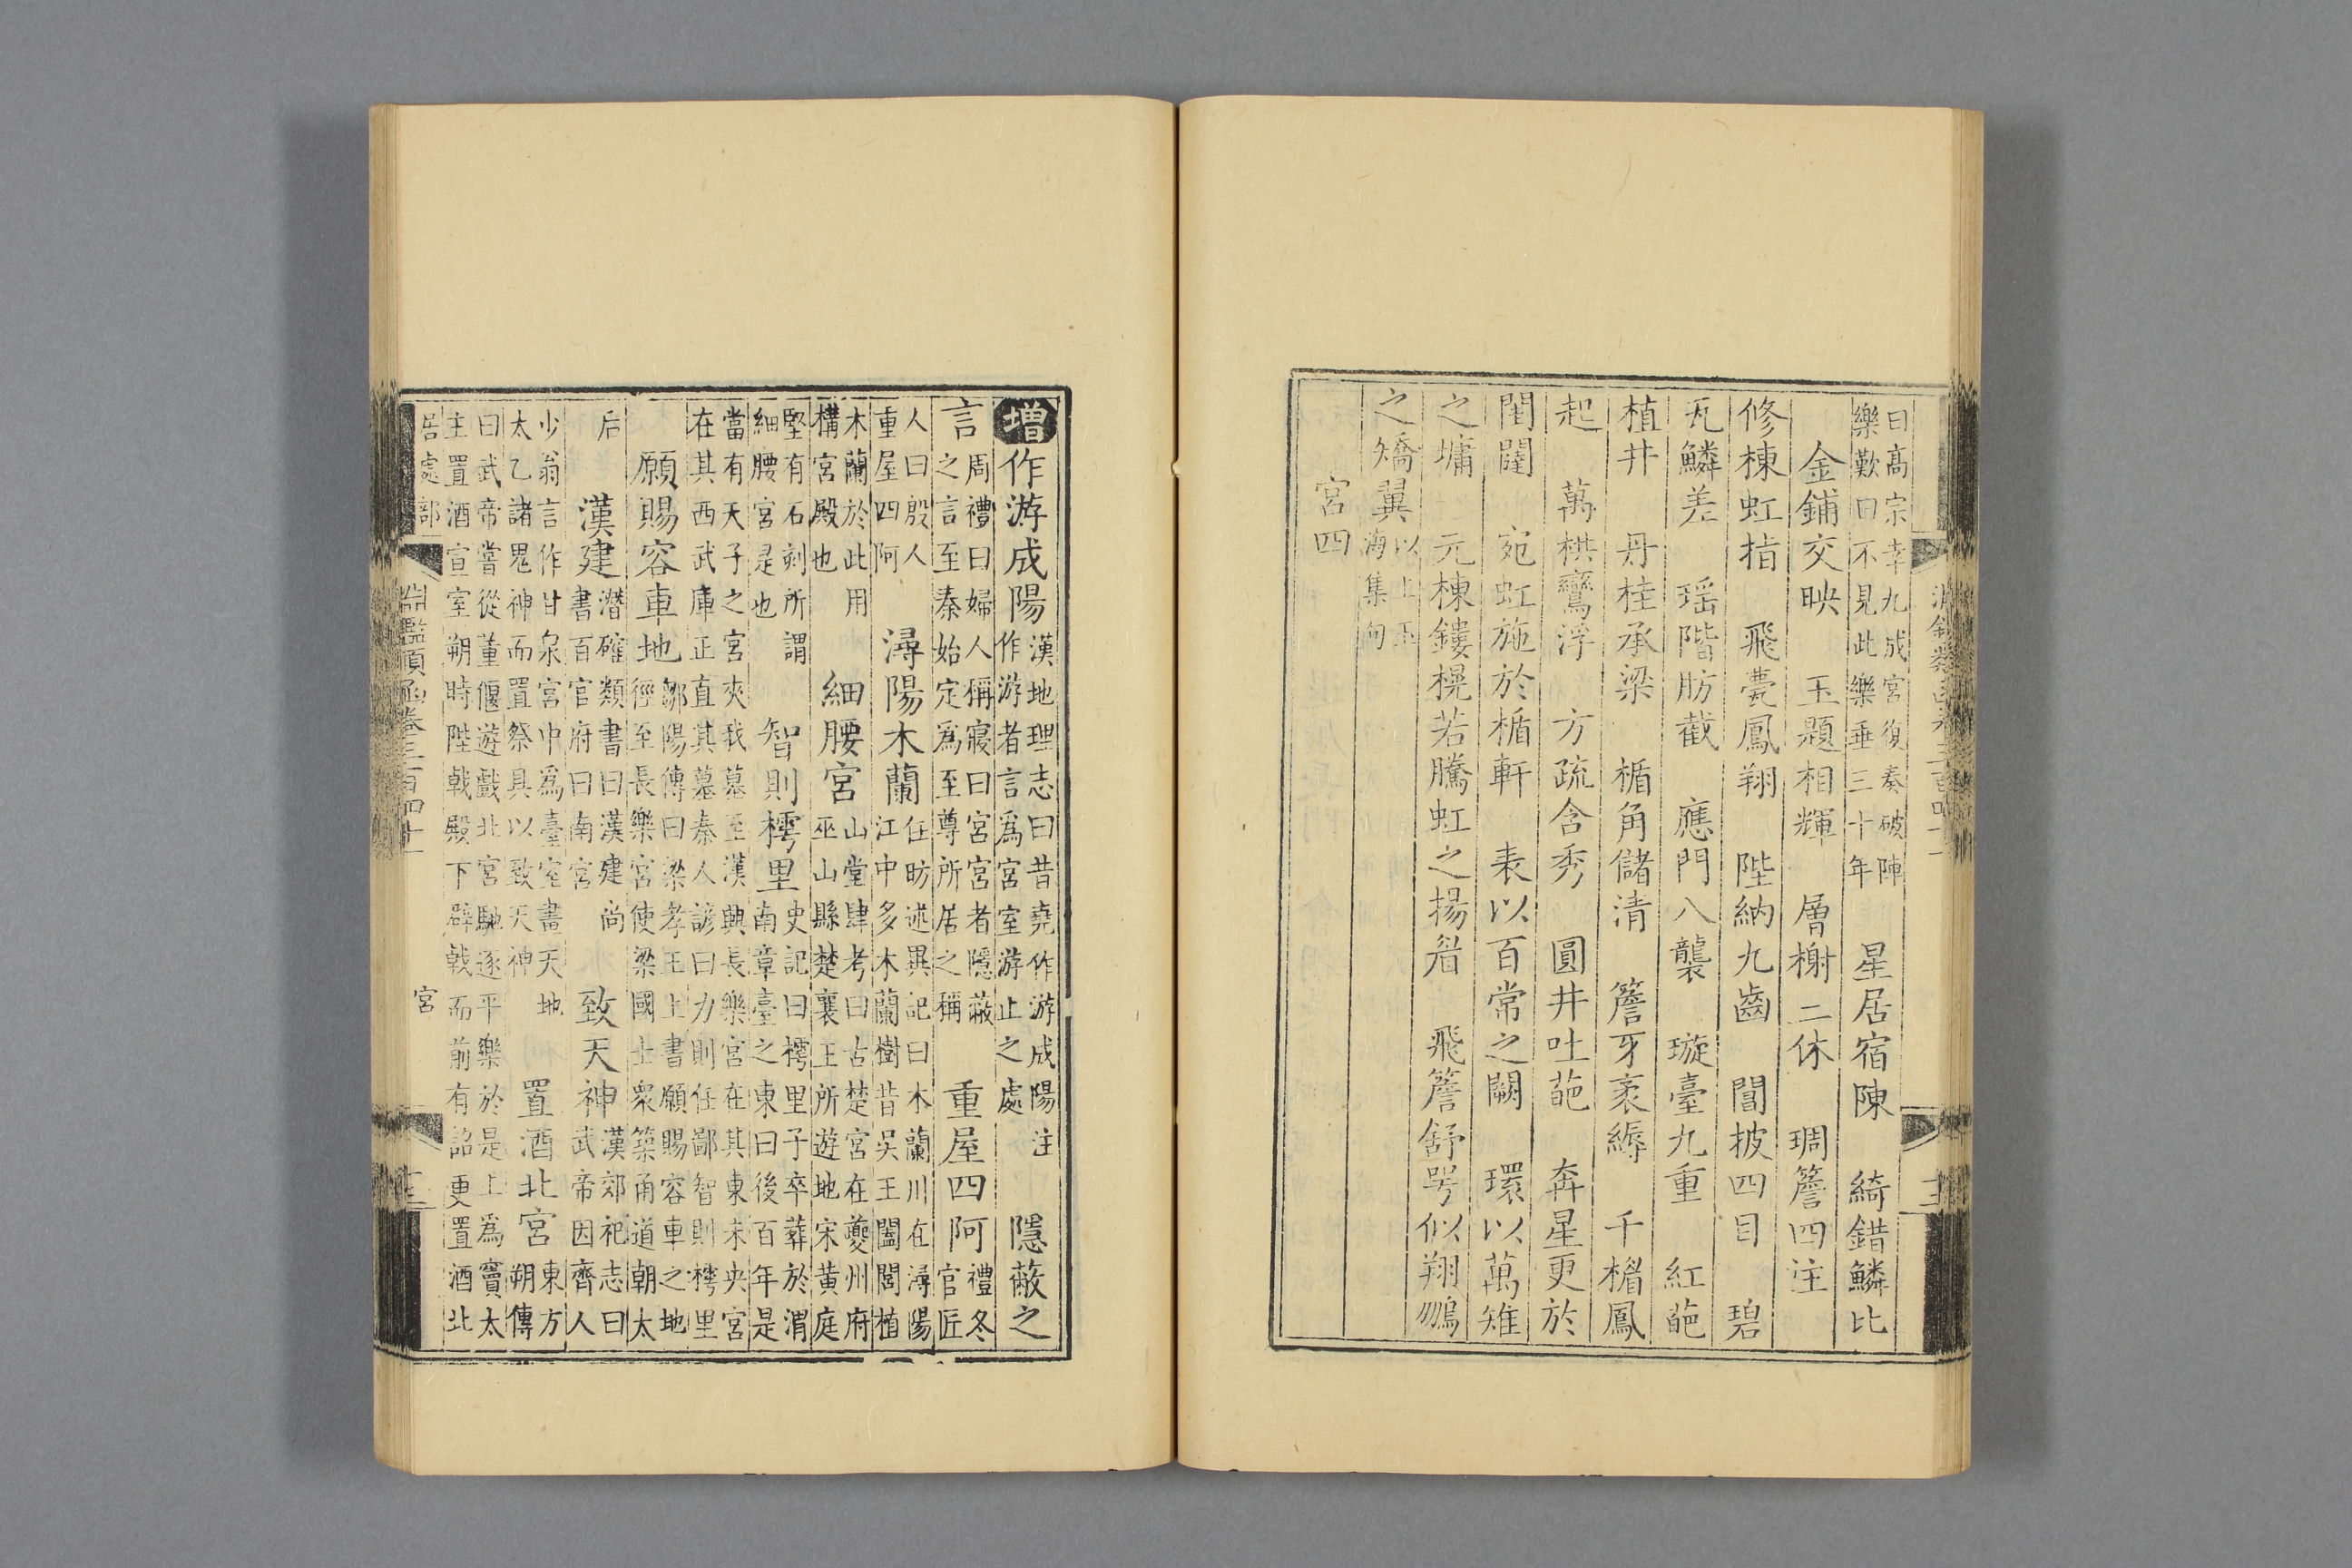 曰高宗幸九成宮復奏破陣
樂歎曰不見此樂垂三十年
星居宿陳 綺錯鱗比
金鋪交映 玉題相輝 層榭三休 琱簷四注
修棟虹指 飛甍鳳翔 陛納九齒 閶披四目 碧
瓦鱗差 瑶階肪截 應門八襲 璇臺九重 紅葩
植井 丹桂承梁 楯角儲清 簷牙袤縟 千楣鳳
起 萬栱鸞浮 方疏含秀 圓井吐葩 奔星更於
閨闥 宛虹施於楯軒 表以百常之闕 環以萬雉
之墉 元棟鏤榥若騰虹之揚眉 飛簷舒咢似翔鵬
之矯翼
以上玉
海集句
宮四
增作游成陽
漢地理志曰昔堯作游成陽注
作游者言爲宮室游止之處
隱蔽之
言
周禮曰婦人稱寢曰宮宮者隱蔽
之言至秦始定爲至尊所居之稱
重屋四阿
禮冬官匠
人曰殷人
重屋四阿
潯陽木蘭
任昉述異記曰木蘭川在潯陽
江中多木蘭樹昔吳王闔閭植
木蘭於此用
構宮殿也
細腰宮
山堂肆考曰古楚宮在夔州府
巫山縣楚襄王所遊地宋黃庭
堅有石刻所謂
細腰宮是也
智則樗里
史記曰樗里子卒葬於渭
南章臺之東曰後百年是
當有天子之宮夾我墓至漢興長樂宮在其東未央宮
在其西武庫正直其墓秦人諺曰力則任鄙智則樗里
願賜容車地
鄒陽傳曰梁孝王上書願賜容車之地
徑至長樂宮使梁國士衆築甬道朝太
后
漢建
潛確類書曰漢建尚
書百官府曰南宮
致天神
漢郊祀志曰
武帝因齊人
少翁言作甘泉宮中爲臺室畫天地
太乙諸鬼神而置祭具以致天神
置酒北宮
東方
朔傳
曰武帝嘗從董偃遊戲北宮馳逐平樂於是上爲竇太
主置酒宣室朔時陛戟殿下辟戟而前有詔更置酒北
居處部
淵鑑類函卷三百四十一
宮
十三